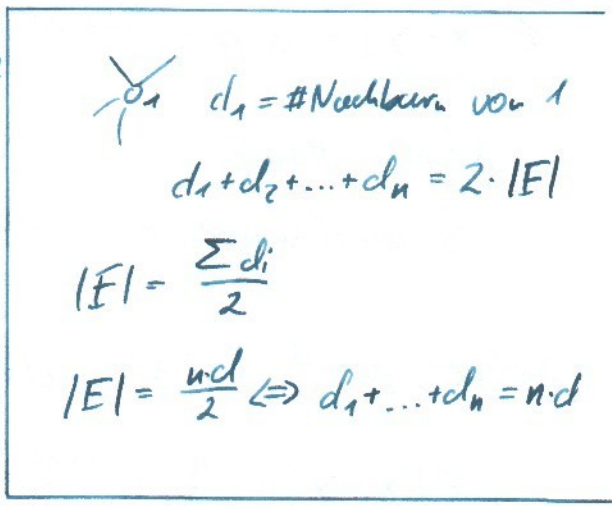 1 d₁ = #Nachbarn von 1
d₁+d₂+...+dₙ = 2·|E|
|E| = Σdᵢ/2
|E| = n·d/2 ⇔ d₁+...+dₙ = n·d